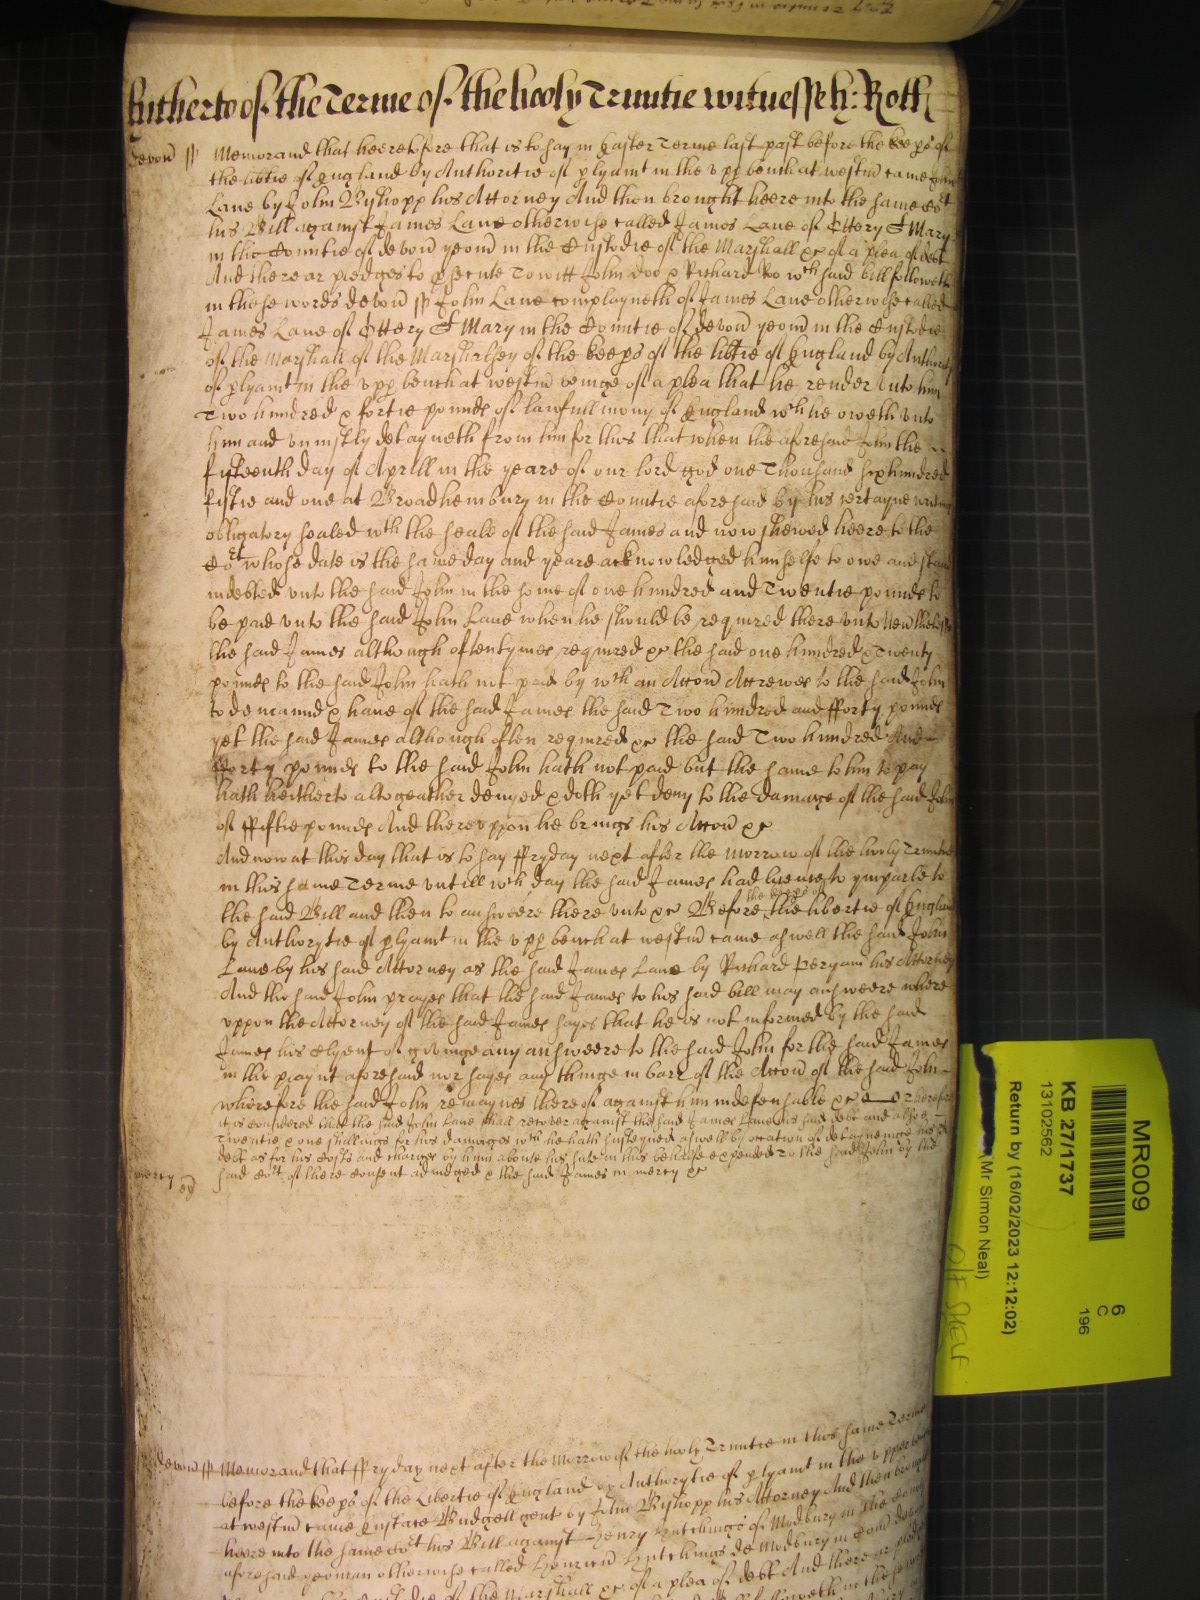 hitherto of the Terme of the hooly Trinitie witnesseth: Roth
Devon ss Memorand that heeretofore that is to say in Easter Terme last past before the keeps of
the libtie of England by Authoritie of plyamt in the upp bench at westm came John
Lane by John Byshopp his Attorney And then brought heere into the same Cort
his Bill against James Lane otherwise called James Lane of Ottery St Mary
in the Countie of devon yeom in the Custodie of the Marshall &c of a plea of debt
And there ar pledges to psecute To witt John doo & Richard Roo wch said bill followeth
in these words devon ss John Lane complayneth of James Lane otherwise called
James Lane of Ottery St Mary in the Countie of devon yeom in the Custodie
of the Marshall of the Marshalsey of the keeps of the libtie of England by Authority
of plyamt in the upp bench at westm beinge of a plea that he render unto him
Two hundred & fortie pounds of lawfull mony of England wch he oweth unto
him and uniustly detayneth from him for this that when the aforesaid John the
fifteenth day of Aprill in the yeare of our lord god one Thousand six hundred
fiftie and one at Broadhembury in the Countie aforesaid by his certayne writinge
obligatory sealed wth the seale of the said James and now shewed heere to the
Cort whose date is the same day and yeare acknowledged himselfe to owe and stand
indebted unto the said John in the some of one hundred and Twentie pounds to
be paid unto the said John Lane when he should be required there unto Neverthelesse
the said James although oftentymes required &c the said one hundred & Twenty
pounds to the said John hath not paid by wch an Accon Accrewes to the said John
to demaund & have of the said James the said Two hundred and fforty pounds
yet the said James although often required &c the said Two hundred And
fforty pounds to the said John hath not paid but the same to him to pay
hath heitherto altogeather denyed & doth yet deny to the damage of the said John
of ffiftie pounds And thereuppon he brings his Accon &c
And now at this day that is to say ffryday next after the Morrow of the hooly Trinitie
in this same Terme untill wch day the said James had license to ymparle to
the said Bill and then to answeere there unto &c Before the keeps of the libertie of England
by Authorytie of plyamt in the upp bench at westm came aswell the said John
Lane by his said Attorney as the said James Lane by Richard Peryam his Attorney
And the said John prayes that the said James to his said bill may answeere where
uppon the Attorney of the said James sayes that he is not informed by the said
James his Clyent of givinge any answeere to the said John for the said James
in the playnt aforesaid nor sayes any thinge in barr of the Accon of the said John
wherefore the said John remaynes thereof against him indefensable &c Therefore
it is considered that the said John Lane shall recover against the said James Lane his said debt and alsoe
Twentie & one shillings for his damages wch he hath susteyned aswell by occation of detayneinge his sd
debt as for his Costs and charges by him about his sute in this behalfe expended To the said John by the
said Cort of there Consent adiudged & the said James in mercy &c
mercy
Devon ss Memorand that ffryday next after the Morrow of the hooly Trinitie in this same Terme
before the keeps of the Libertie of England by Authorytie of plyamt in the upper bench
at westm came Eustace Budgell gent by John Byshopp his Attorney And then brought
heere into the same Cort his Bill against Henry Hutchings of Modbury in the County
aforesaid yeoman otherwise called Henricu Hutchings de Modbury in Com devon
of the Marshall &c of a plea of debt And there ar pledges
MR009
6
C
196
KB 27/1737
13102562
Return by (16/02/2023 12:12:02)
(Mr Simon Neal)
O/F SHELF